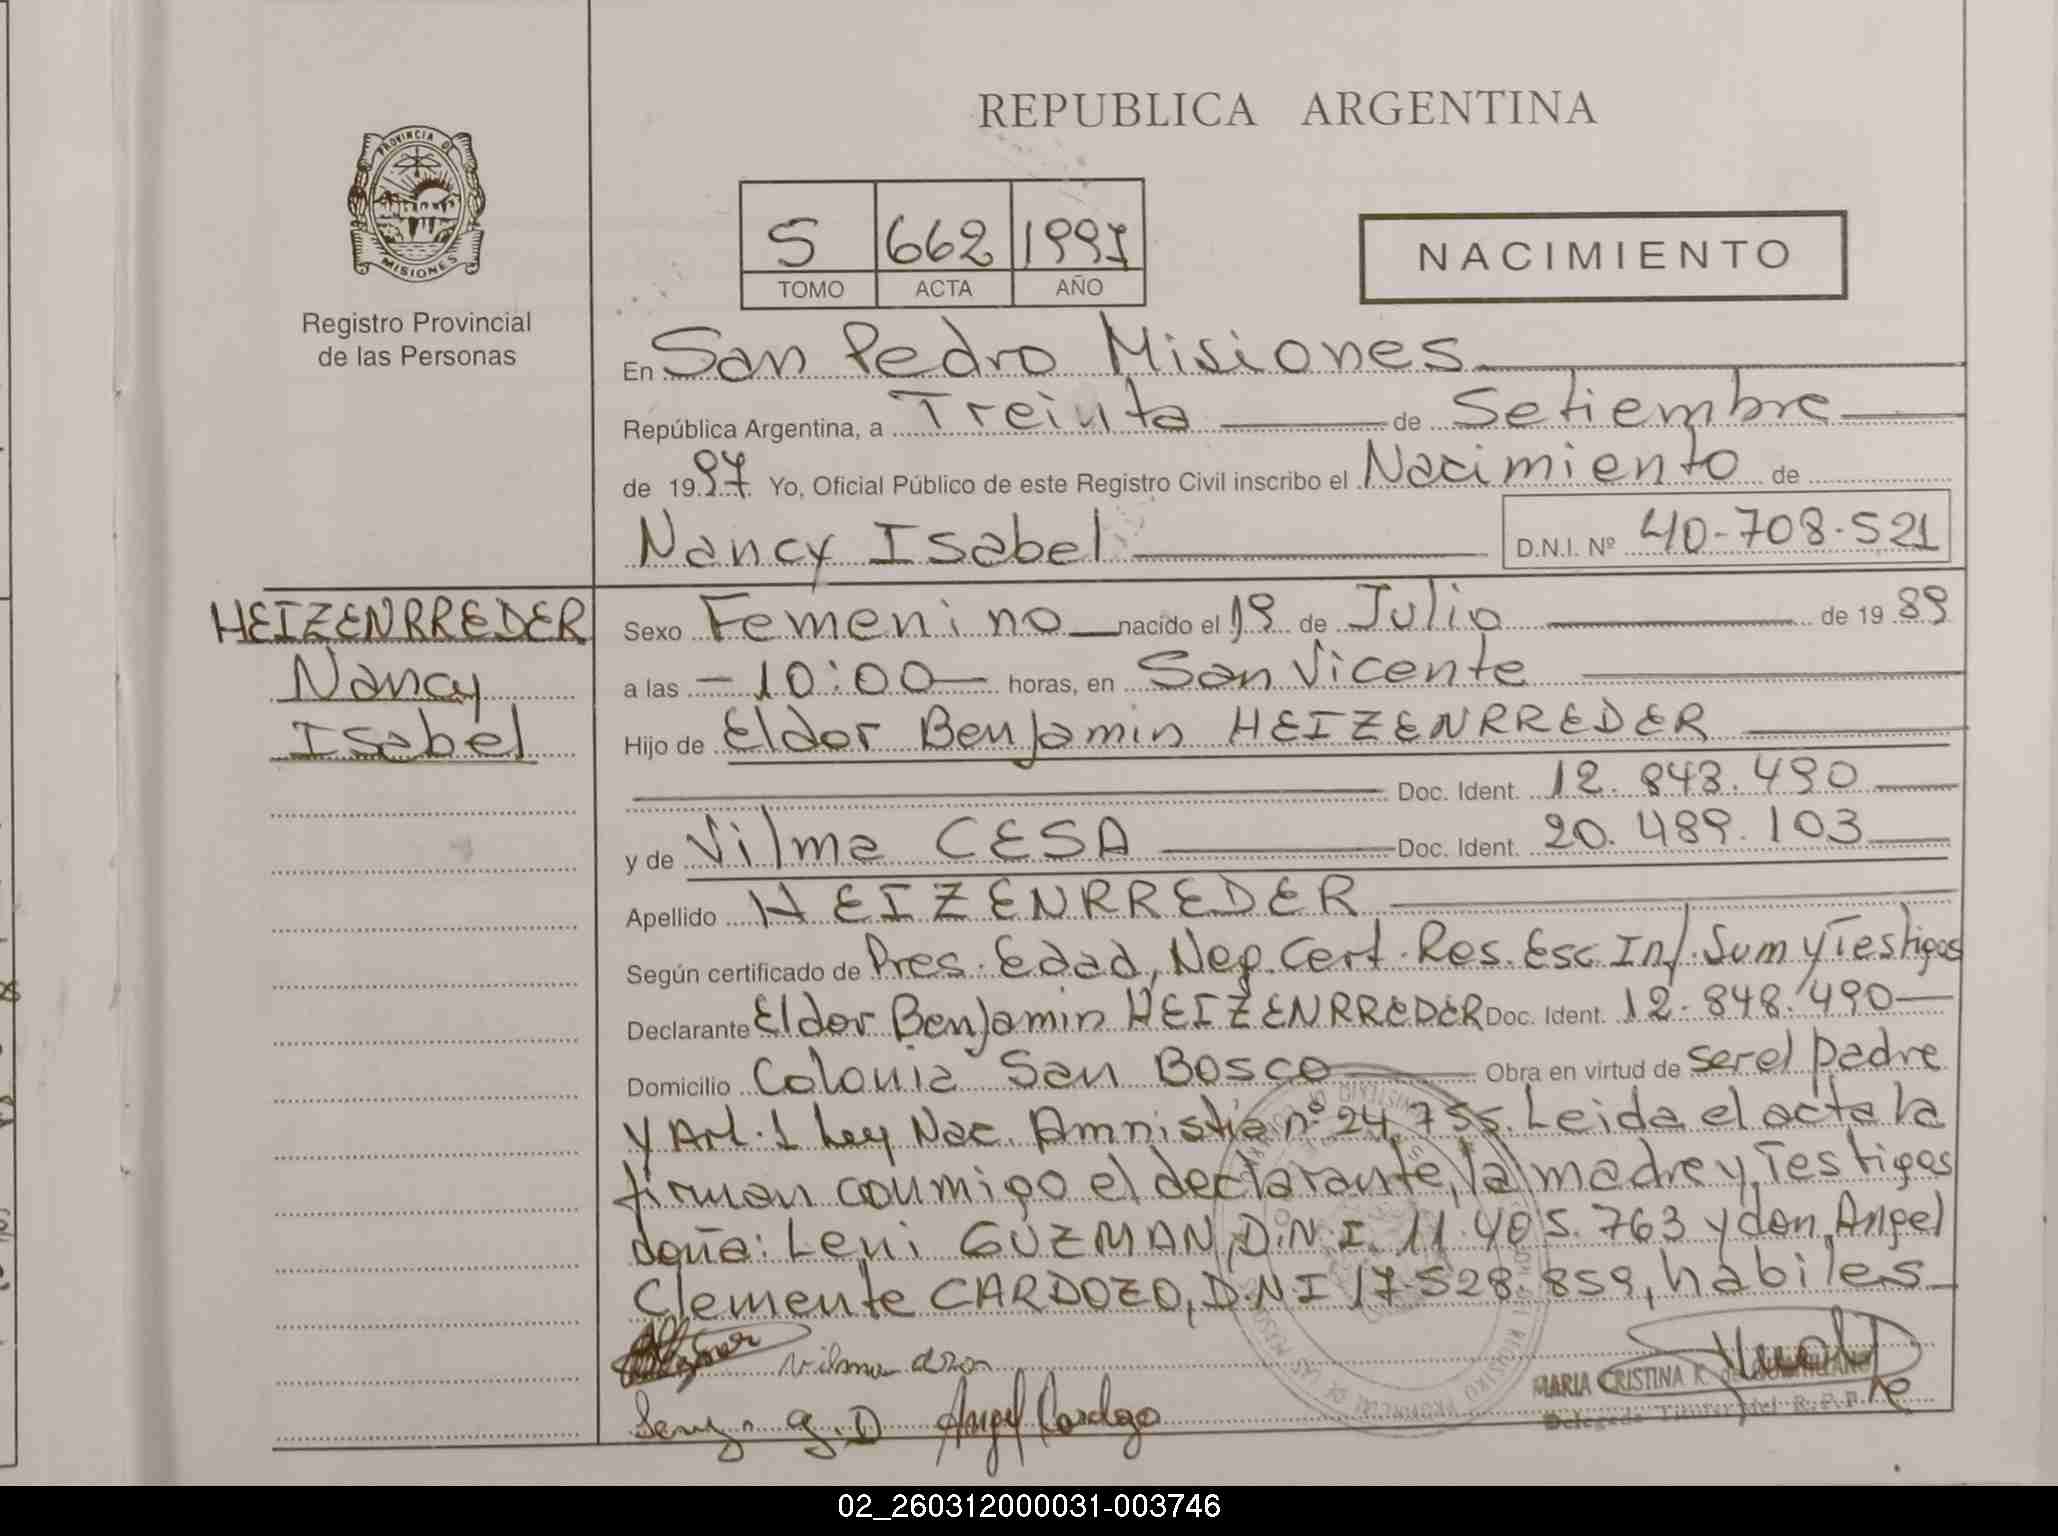 REPUBLICA ARGENTINA
PROVINCIA DE
MISIONES
Registro Provincial
de las Personas
5 662 1997
TOMO ACTA AÑO
NACIMIENTO
En San Pedro Misiones
República Argentina, a Treinta de Setiembre
de 1997. Yo, Oficial Público de este Registro Civil inscribo el Nacimiento de
Nancy Isabel D.N.I. Nº 40-708-521
HEIZENRREDER
Nancy
Isabel
Sexo Femenino nacido el 19 de Julio de 1989
a las -10:00- horas, en San Vicente
Hijo de Eldor Benjamin HEIZENRREDER
Doc. Ident. 12.848.490
y de Vilma CESA Doc. Ident. 20.489.103
Apellido HEIZENRREDER
Según certificado de Pres. Edad, Neg. Cert. Res. Esc. Inf. Sum y Testigos
Declarante Eldor Benjamin HEIZENRREDER Doc. Ident. 12.848.490
Domicilio Colonia San Bosco Obra en virtud de ser el padre
y Art. 1 Ley Nac. Amnistia nº 24.755. Leida el acta la
firman conmigo el declarante, la madre y Testigos
doña: Leni GUZMAN, D.N.I. 11.405.763 y don, Angel
Clemente CARDOZO, D.N.I 17.528.859, habiles
Vilma
Angel Cardozo
MARIA CRISTINA K. de
Delegada Titular del R.P.P.
02_260312000031-003746